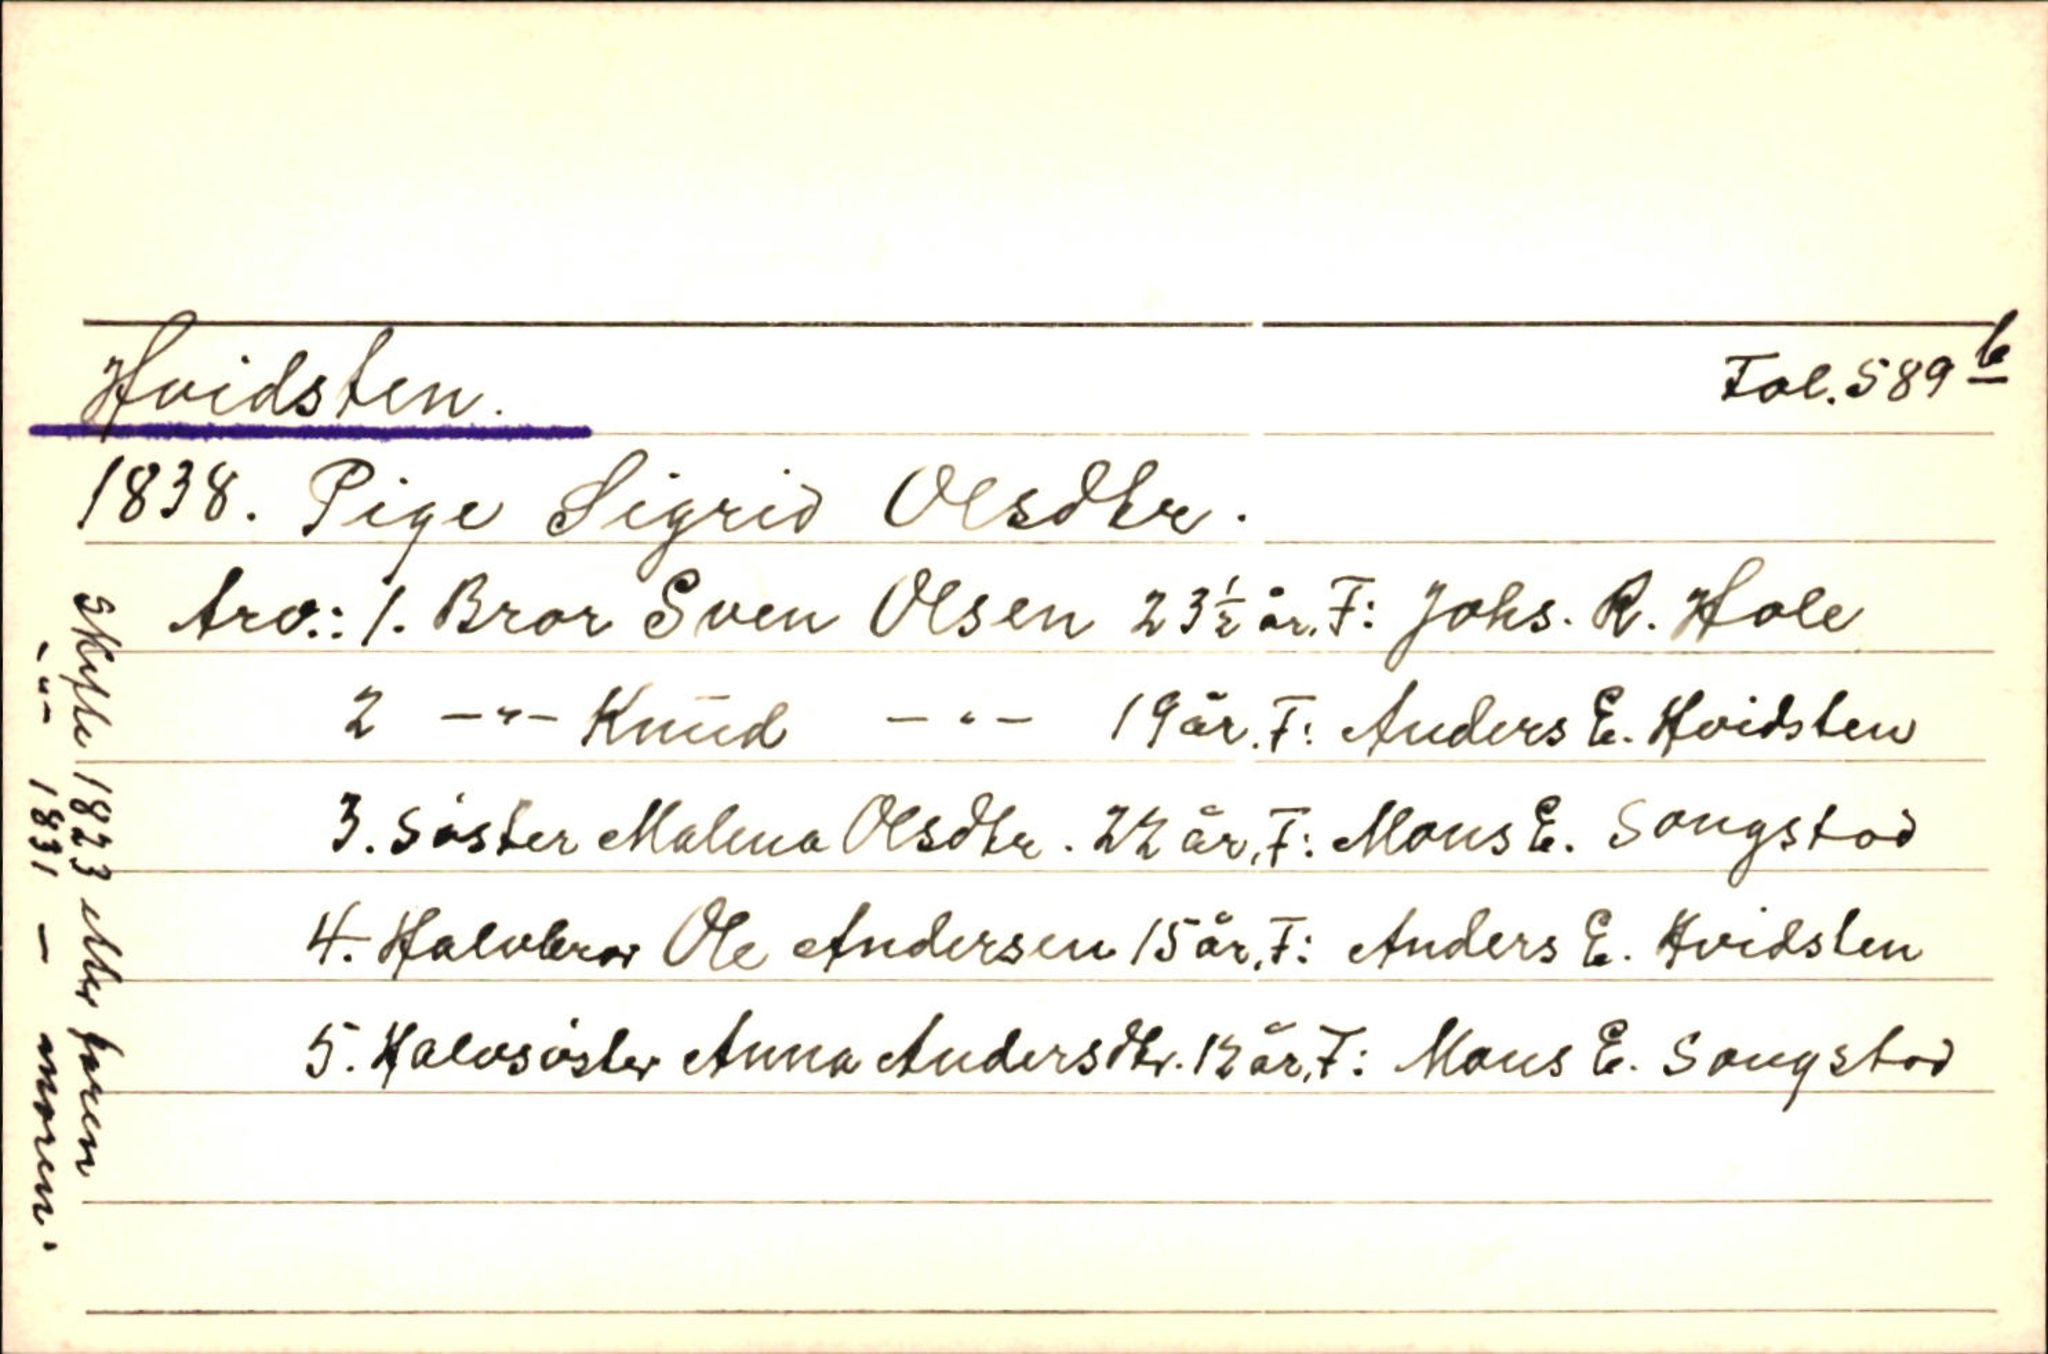 Hvidsten. Fol. 589 b
1838. Pige Sigrid Olsdtr.
Arv.: 1. Bror Sven Olsen 23½ år, F: Johs. R. Hole
2 -"- Knud -"- 19 år. F: Anders E. Hvidsten
3. Søster Malena Olsdtr. 22 år, F: Mons E. Songstad
4. Halvbror Ole Andersen 15 år, F: Anders E. Hvidsten
5. Halvsøster Anna Andersdtr. 12 år, F: Mons E. Songstad
Skifte 1823 etter faren
-"- 1831 — moren.